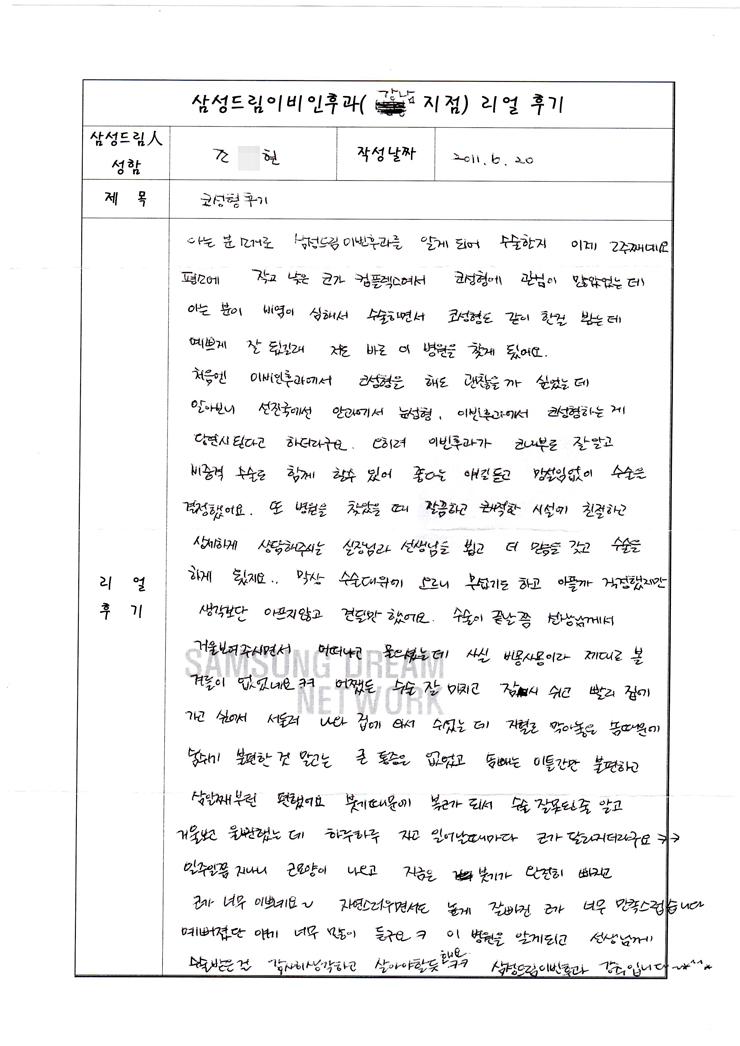 삼성드림이비인후과( 강남 지점) 리얼 후기
삼성드림人 성함
조 현
작성날짜
2011. 6. 20
제 목
코성형후기
리 얼 후 기
아는 분 소개로 삼성드림이빈후과를 알게 되어 수술한지 이제 2주째네요
평소에 작고 낮은 코가 컴플렉스여서 코성형에 관심이 많았었는데
아는 분이 비염이 심해서 수술하면서 코성형도 같이 한걸 봤는데
예쁘게 잘 됬길래 저도 바로 이 병원을 찾게 됬어요.
처음엔 이비인후과에서 코성형을 해도 괜찮을까 싶었는데
알아보니 선진국에선 안과에서 눈성형, 이빈후과에서 코성형하는게
당연시된다고 하더라구요. 오히려 이빈후과가 코내부로 잘알고
비중격 수술로 함께 할수 있어 좋다는 얘길듣고 망설임없이 수술을
결정했어요. 또 병원을 찾았을 때 깔끔하고 쾌적한 시설에 친절하고
상세하게 상담해주시는 실장님과 선생님을 뵙고 더 믿음을 갖고 수술을
하게 됬지요.. 막상 수술대위에 오르니 무섭기도 하고 아플까 걱정했지만
생각보단 아프지않고 견딜만 했어요. 수술이 끝난쯤 선생님께서
거울보여주시면서 어떠냐고 물으셨는데 사실 비몽사몽이라 제대로 볼
겨를이 없었네요ㅋㅋ 어쨌든 수술 잘 마치고 잠시 쉬고 빨리 집에
가고 싶어서 서둘러 나와 집에 와서 쉬었는데 지혈로 막아놓은 솜때문에
숨쉬기 불편한 것 말고는 큰 통증은 없었고 솜빼는 이틀간만 불편하고
삼일째부턴 편했어요 붓기때문에 복코가 되서 수술 잘못된줄 알고
거울보고 울뻔했는데 하루하루 자고 일어날때마다 코가 달라지더라구요ㅋㅋ
일주일쯤 지나니 코모양이 나오고 지금은 붓기가 완전히 빠지고
코가 너무 이쁘네요~ 자연스러우면서도 높게 잘빠진 코가 너무 만족스럽습니다
예뻐졌단 얘기 너무 많이 듣구요ㅋ 이 병원을 알게되고 선생님께
수술받은건 감사히생각하고 살아야할듯 해요ㅋㅋ 삼성드림이빈후과 강추입니다~*^^*
SAMSUNG DREAM
NETWORK